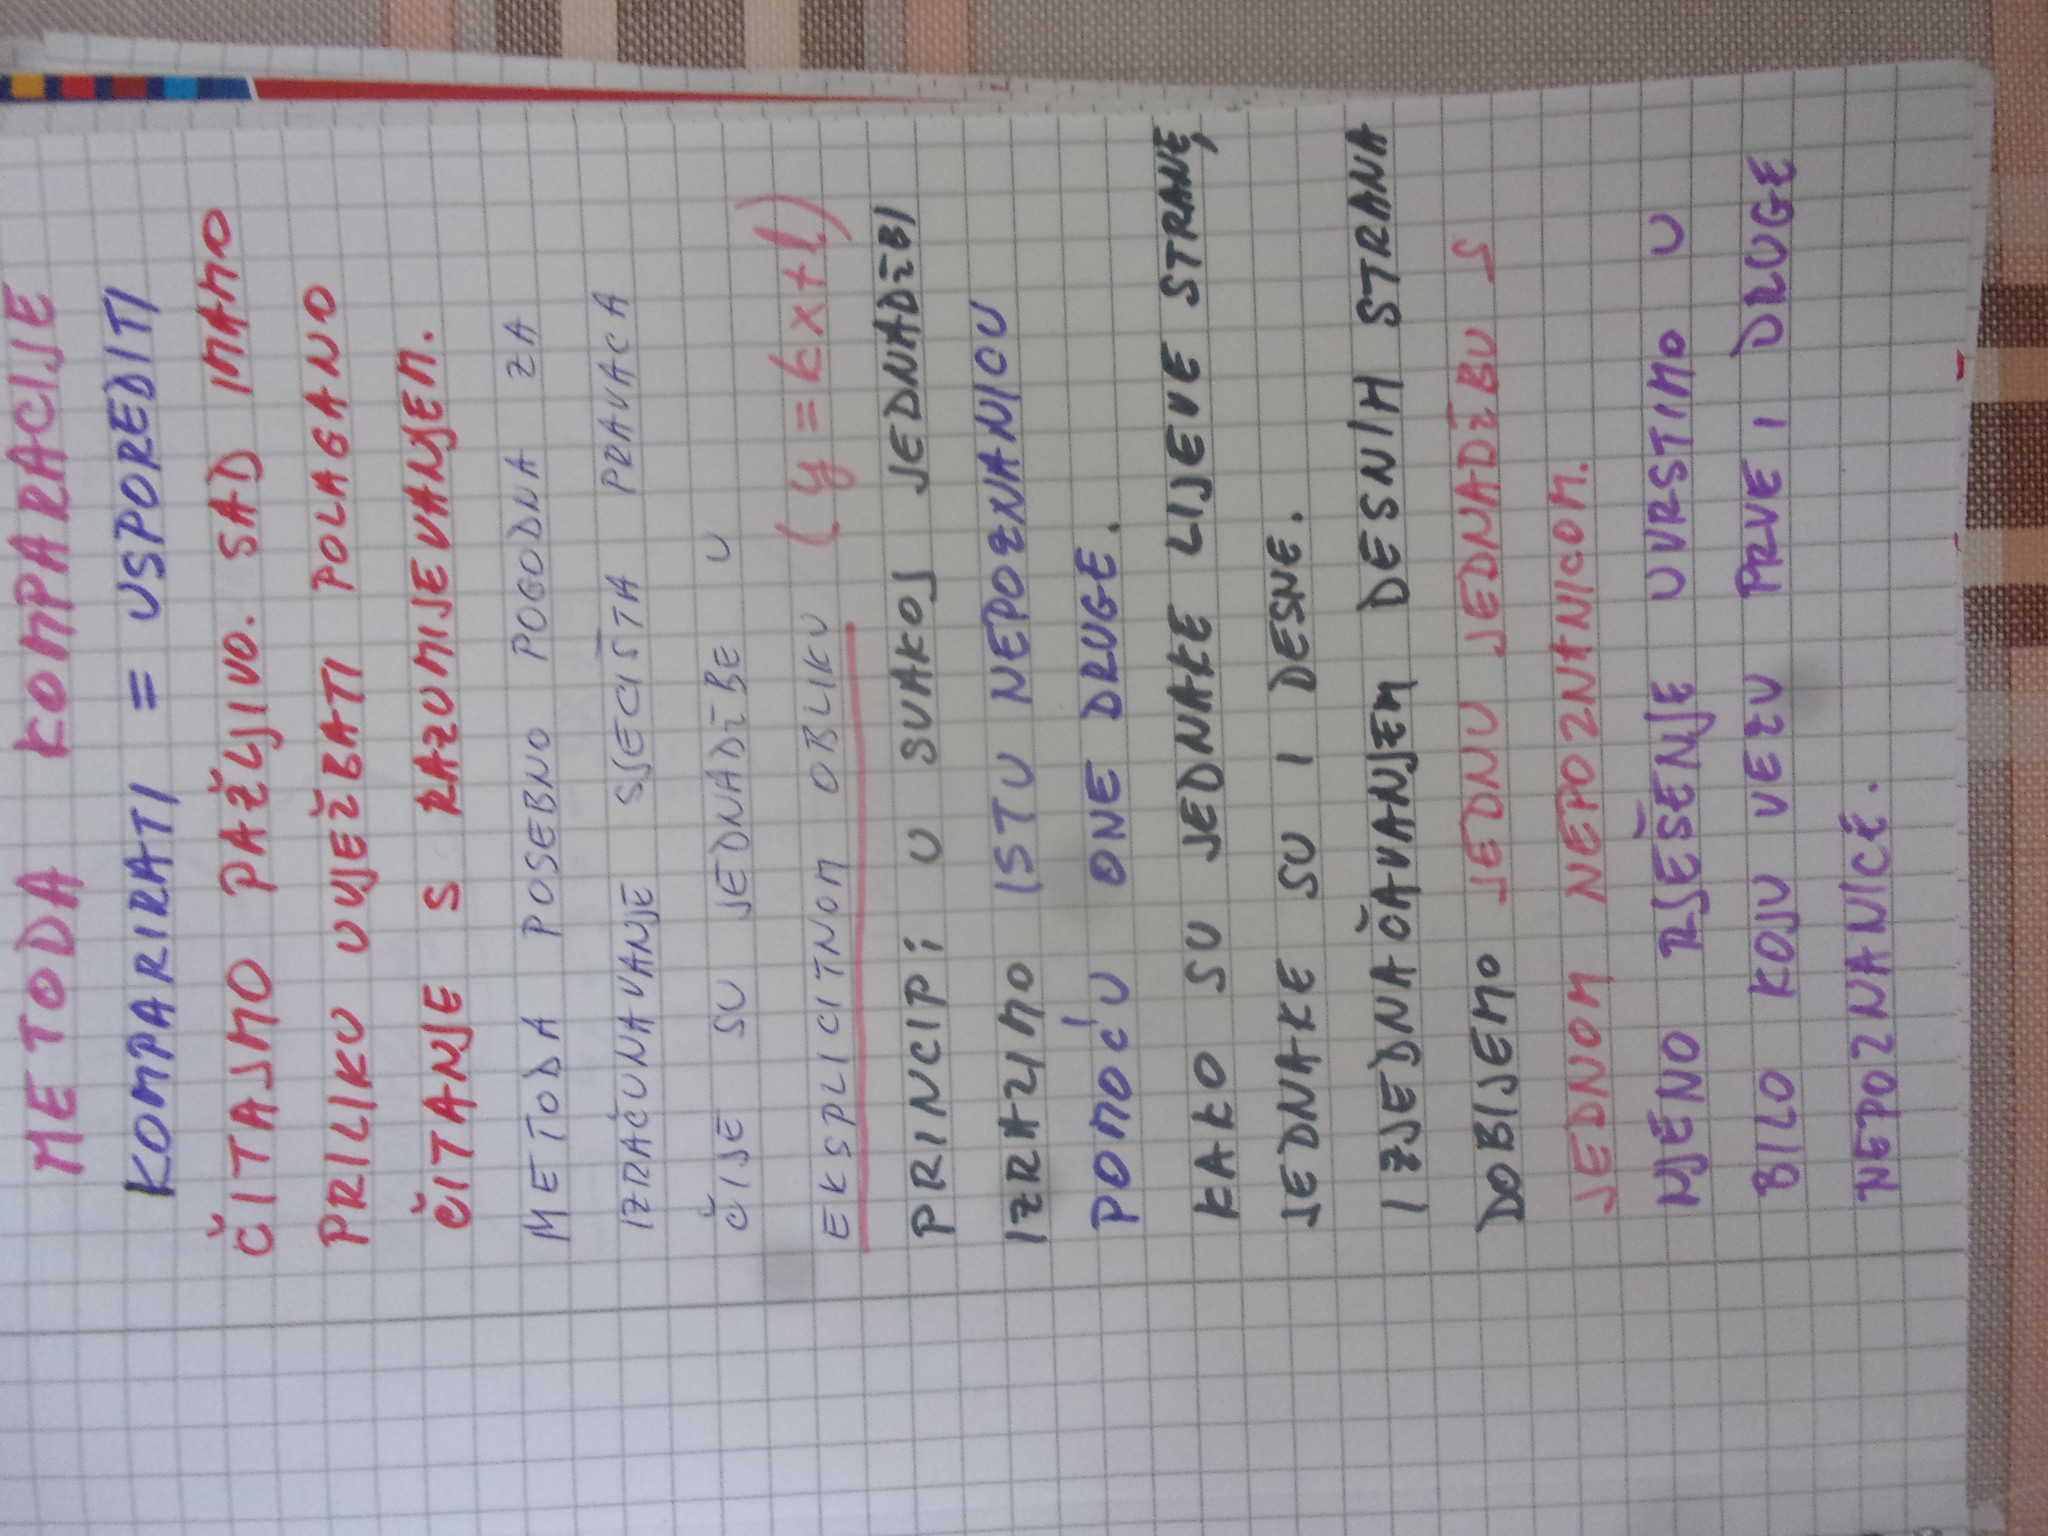 METODA KOMPARACIJE
KOMPARIRATI = USPOREDITI
ČITAJMO PAŽLJIVO. SAD IMAMO
PRILIKU UVJEŽBATI POLAGANO
ČITANJE S RAZUMIJEVANJEM.
METODA POSEBNO POGODNA ZA
IZRAČUNAVANJE SJECIŠTA PRAVACA
ČIJE SU JEDNADŽBE U
EKSPLICITNOM OBLIKU (y = kx + l)
PRINCIP: U SVAKOJ JEDNADŽBI
IZRAZIMO ISTU NEPOZNANICU
POMOĆU ONE DRUGE.
KAKO SU JEDNAKE LIJEVE STRANE,
JEDNAKE SU I DESNE.
IZJEDNAČAVANJEM DESNIH STRANA
DOBIJEMO JEDNU JEDNADŽBU S
JEDNOM NEPOZNANICOM.
NJENO RJEŠENJE UVRSTIMO U
BILO KOJU VEZU PRVE I DRUGE
NEPOZNANICE.